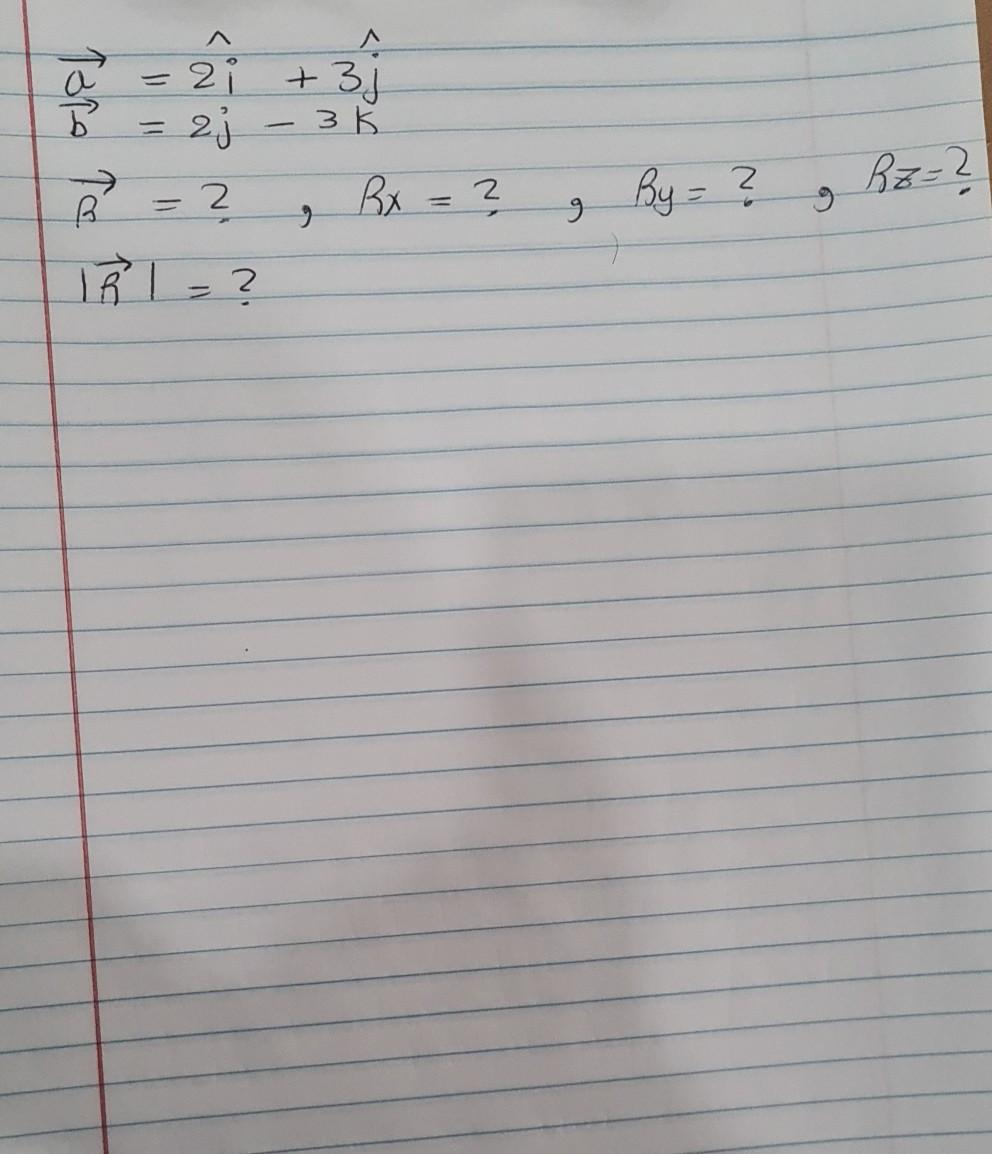 a⃗ = 2î + 3ĵ
b⃗ = 2j - 3k
R⃗ = ? , Rx = ? , Ry = ? , Rz = ?
|R⃗| = ?